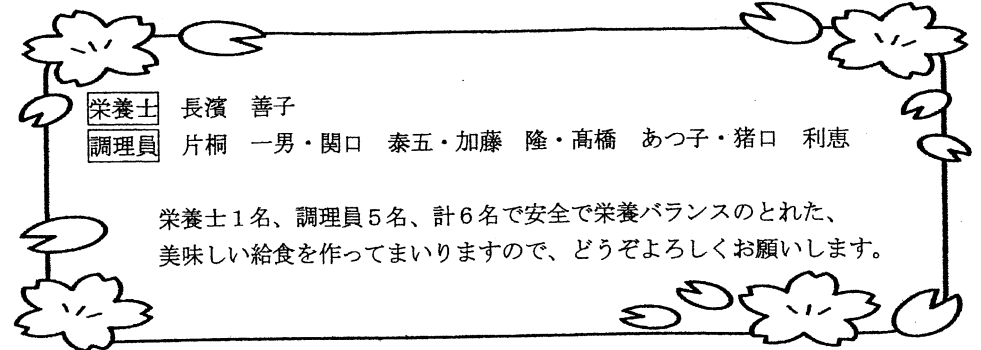 栄養士　長濱　善子
調理員　片桐　一男・関口　泰五・加藤　隆・髙橋　あつ子・猪口　利恵
栄養士１名、調理員５名、計６名で安全で栄養バランスのとれた、
美味しい給食を作ってまいりますので、どうぞよろしくお願いします。